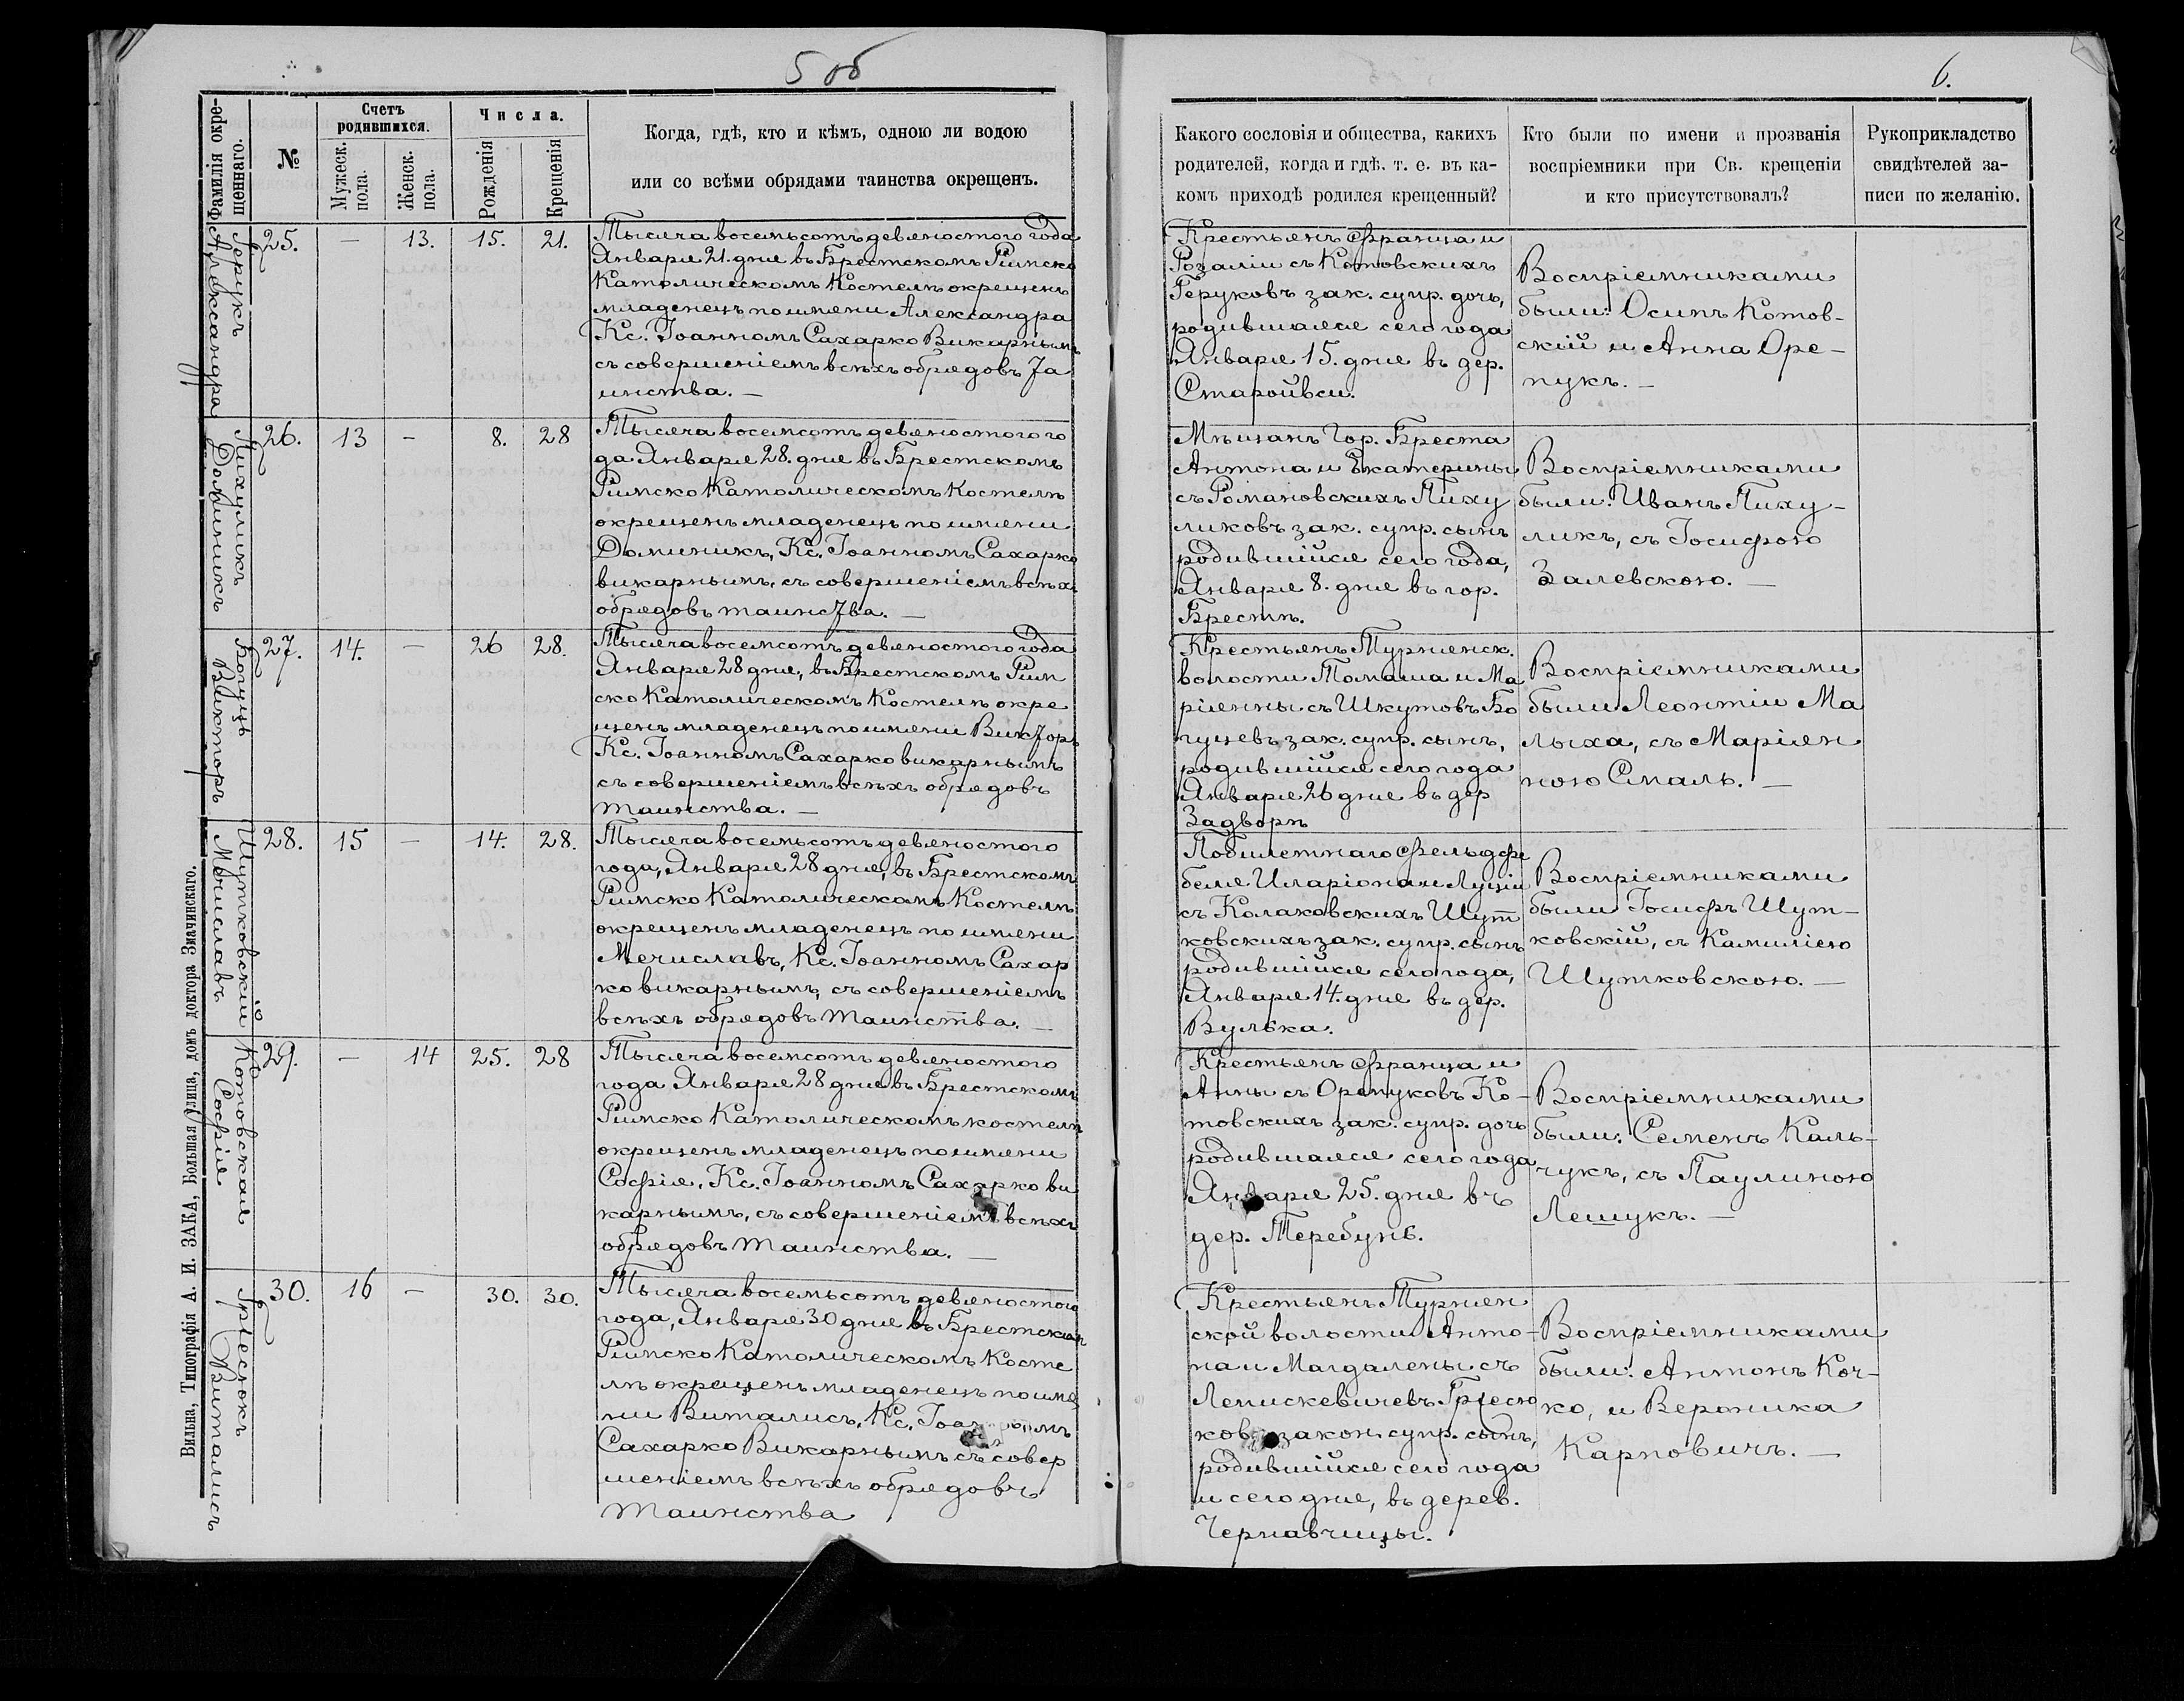 5 об
6.
Фамилія окре-
щеннаго.
№
Счетъ
родившихся.
Мужеск.
пола.
Женск.
пола.
Числа.
Рожденія
Крещенія
Когда, гдѣ, кто и кѣмъ, одною ли водою
или со всѣми обрядами таинства окрещенъ.
Какого сословія и общества, какихъ
родителей, когда и гдѣ. т. е. въ ка-
комъ приходѣ родился крещенный?
Кто были по имени и прозванія
воспріемники при Св. крещеніи
и кто присутствовалъ?
Рукоприкладство
свидѣтелей за-
писи по желанію.
Герукъ
Александра
25. — 13. 15. 21.
Тысяча восемьсотъ девяностого года
Января 21. дня въ Брестскомъ Римско
Католическомъ Костелѣ окрещенъ
младенецъ по имени Александра
Кс. Іоанномъ Сахарко Викарнымъ
съ совершеніемъ всѣхъ обрядовъ Та
инства. —
Крестьянъ Франца и
Розаліи съ Котовскихъ
Геруковъ зак. супр. дочь,
родившаяся сего года
Января 15. дня въ дер.
Старойвси.
Воспріемниками
были: Осипъ Котов-
скій и Анна Оре-
пукъ. —
Пихуликъ
Доминикъ
26. 13 — 8. 28
Тысяча восемсотъ девяностого го
да Января 28. дня въ Брестскомъ
Римско Католическомъ Костелѣ
окрещенъ младенецъ по имени
Доминикъ, Кс. Іоанномъ Сахарко
викарнымъ, съ совершеніемъ всѣхъ
обрядовъ таинства. —
Мѣщанъ Гор. Бреста
Антона и Екатерины
съ Романовскихъ Пиху
ликовъ зак. супр. сынъ
родившійся сего года,
Января 8. дня въ гор.
Брестѣ.
Воспріемниками
были: Иванъ Пиху-
ликъ, съ Іосифою
Залевскою. —
Богуцъ
Викторъ
27. 14. — 26 28.
Тысяча восемсотъ девяностого года
Января 28 дня, въ Брестскомъ Рим
ско Католическомъ Костелѣ окре
щенъ младенецъ по имени Викторъ
Кс. Іоанномъ Сахарко викарнымъ
съ совершеніемъ всѣхъ обрядовъ
таинства. —
Крестьянъ Турненск.
волости Томаша и Ма
ріянны съ Шкутовъ Бо
гуцевъ зак. супр. сынъ,
родившійся сего года
Января 26 дня въ дер
Задворѣ
Воспріемниками
были Леонтіи Ма
лыха, съ Маріян
ною Смаль. —
Шутковскій
Мечиславъ
28. 15 — 14. 28.
Тысяча восемьсотъ девяностого
года, Января 28 дня, въ Брестскомъ
Римско Католическомъ Костелѣ
окрещенъ младенецъ по имени
Мечиславъ, Кс. Іоанномъ Сахар
ко викарнымъ, съ совершеніемъ
всѣхъ обрядовъ таинства. —
Побилетнаго Фельдфе
беля Иларіона и Луціи
съ Колаковскихъ Шут
ковскихъ зак. супр. сынъ
родившійся сего года,
Января 14. дня въ дер.
Вулька.
Воспріемниками
были Іосифъ Шут-
ковскій, съ Камиліею
Шутковскою. —
Котовская
Софія
29. — 14 25. 28
Тысяча восемсотъ девяностого
года Января 28 дня въ Брестскомъ
Римско Католическомъ костелѣ
окрещенъ младенецъ по имени
Софія, Кс. Іоанномъ Сахарко ви
карнымъ, съ совершеніемъ всѣхъ
обрядовъ таинства. —
Крестьянъ Франца и
Анны съ Орепуковъ Ко-
товскихъ зак. супр. дочь
родившаяся сего года
Января 25. дня въ
дер. Теребунь.
Воспріемниками
были: Семенъ Каль-
чукъ, съ Паулиною
Лешукъ. —
Гріесюкъ
Виталисъ
30. 16 — 30. 30.
Тысяча восемьсотъ девяностого
года, Января 30 дня въ Брестскомъ
Римско Католическомъ Косте
лѣ окрещенъ младенецъ по име
ни Виталисъ, Кс. Іоанномъ
Сахарко Викарнымъ съ совер
шеніемъ всѣхъ обрядовъ
таинства
Крестьянъ Турнян
ской волости Анто-
на и Магдалены съ
Лепискевичевъ Гріесю
ковъ закон. супр. сынъ,
родившійся сего года
и сего дня, въ дерев.
Чернавчицы.
Воспріемниками
были: Антонъ Коч-
ко, и Вероника
Карповичъ. —
Вильна, Типографія А. И. ЗАКА, Большая улица, домъ доктора Значинскаго.